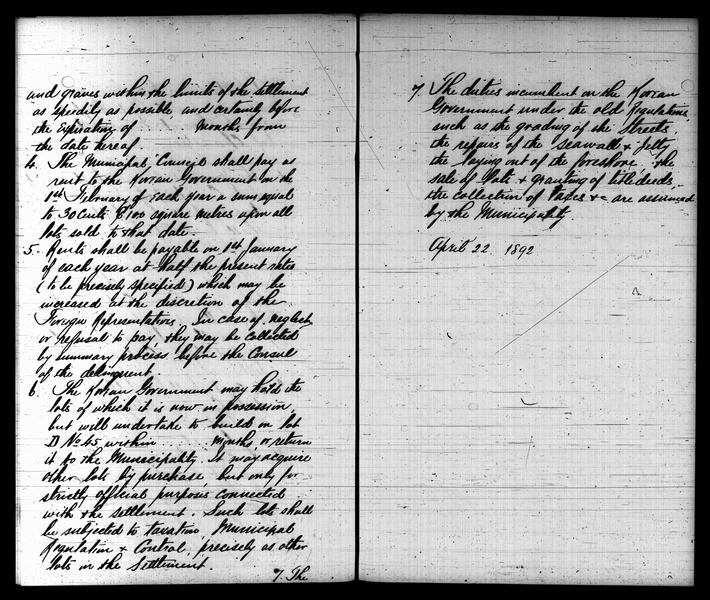 and graves within the limits of the settlement
as speedily as possible and certainly before
the expiration of ........ months from
the date hereof.
4. The Municipal Council shall pay as
rent to the Korean Government on the
1st February of each year a sum equal
to 30 cents 100 square metres upon all
lots sold to that date.
5. Rents shall be payable on 1st January
of each year at half the present rates
(to be precisely specified) which may be
increased at the discretion of the
Foreign Representatives. In case of neglect
or refusal to pay, they may be collected
by summary process before the Consul
of the delinquent.
6. The Korean Government may hold the
lots of which it is now in possession,
but will undertake to build on lot
D No 45 within ........ months, or return
it to the Municipality. It may acquire
other lots by purchase but only for
strictly official purposes connected
with the settlement. Such lots shall
be subjected to taxation, Municipal
Regulation & Control, precisely as other
lots in the Settlement.
7. The
7. The duties incumbent on the Korean
Government under the old Regulations,
such as the grading of the Streets,
the repairs of the seawall & jetty
the laying out of the foreshore, the
sale of lots & granting of title deeds,
the collection of taxes &c are assumed
by the Municipality
April 22 1892